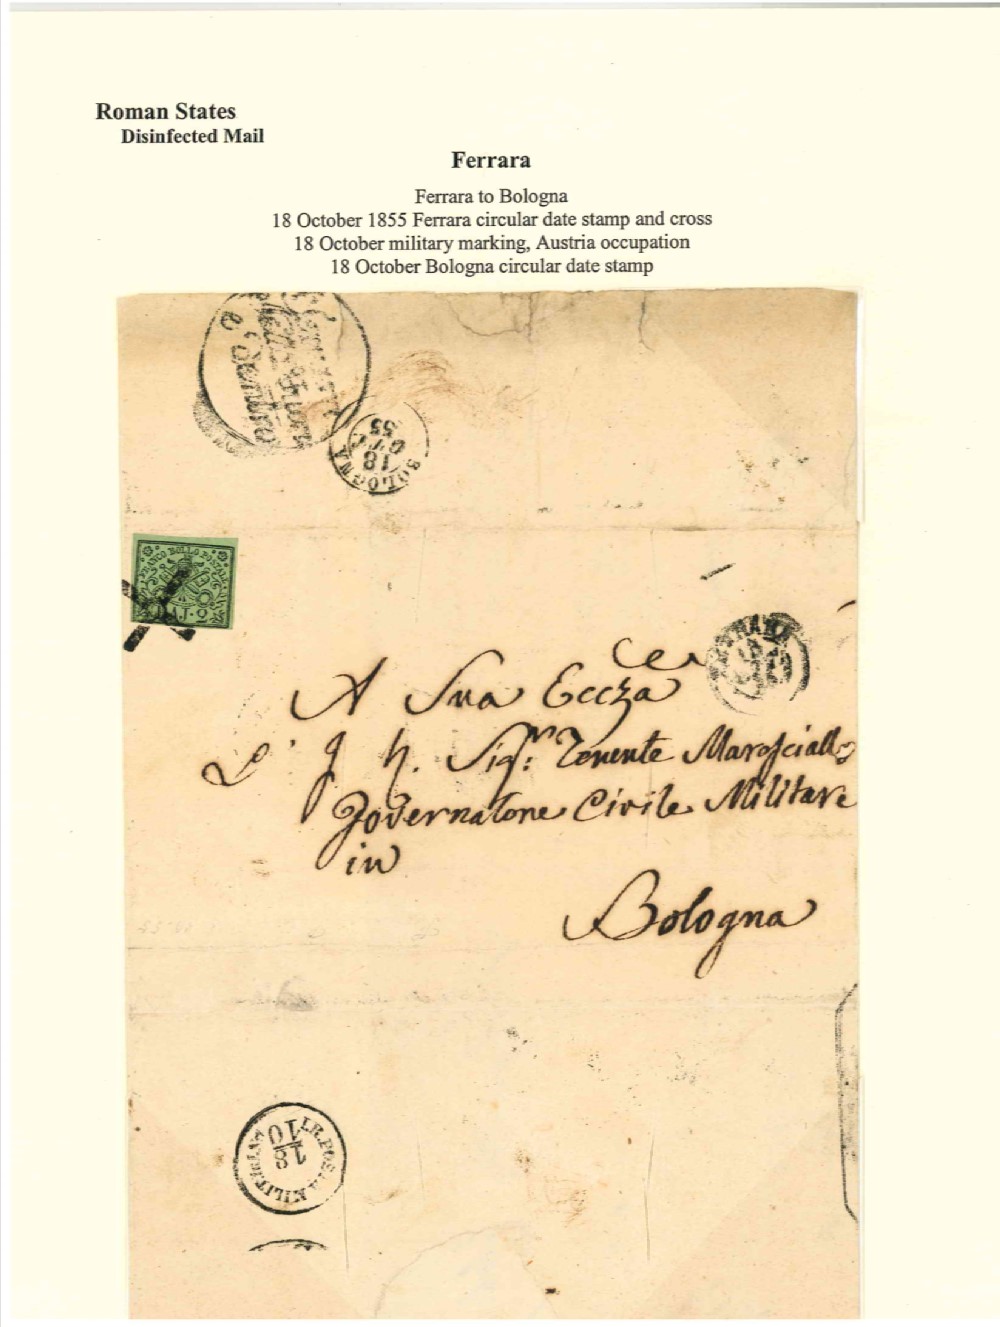 Roman States
Disinfected Mail
Ferrara
Ferrara to Bologna
18 October 1855 Ferrara circular date stamp and cross
18 October military marking, Austria occupation
18 October Bologna circular date stamp
e Sanitaria
BOLOGNA
18
OTT
55
FRANCO BOLLO POSTALE
BAJ. 2
FERRARA
18
A Sua Eccza
L' J. h. Sigr. Tenente Maresciallo
Governatore Civile Militare
in
Bologna
I.R. POSTA MILITARE
18
10